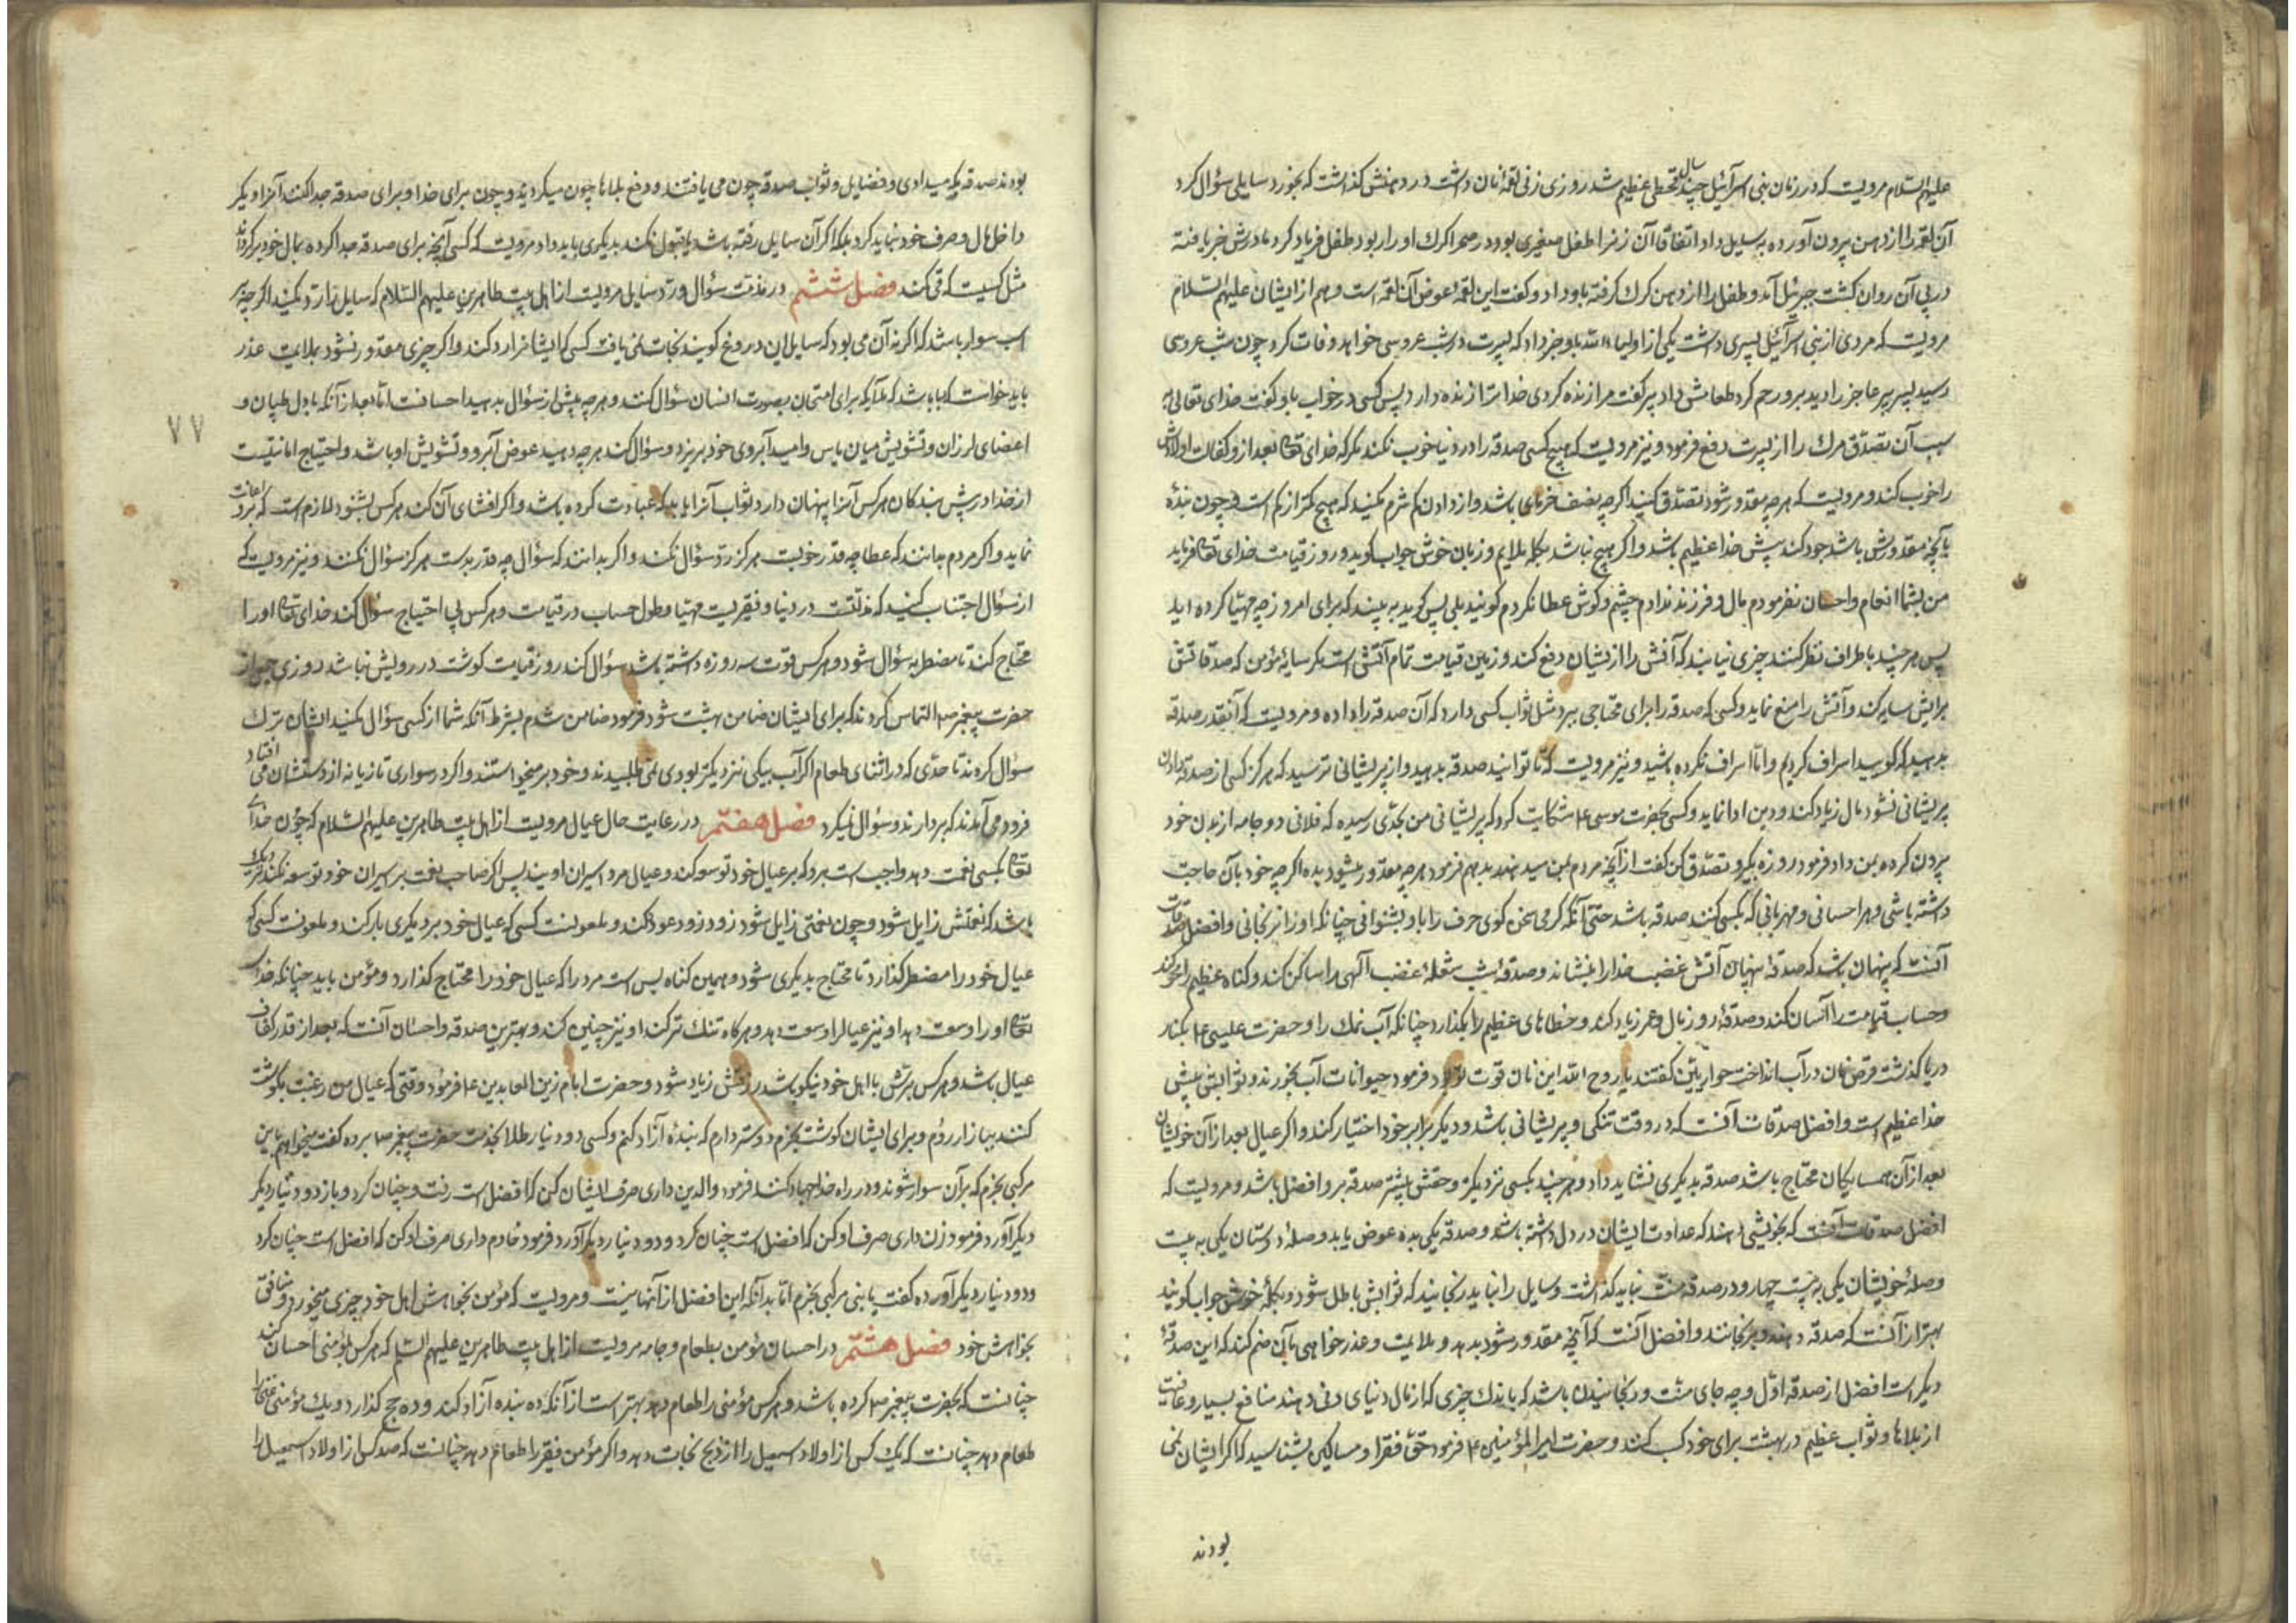 علیهم السلام مرویست که در زمان بنی اسرآئیل چند سال قحطی عظیم شد روزی زنی لقمهٔ نان داشت در دهنش گذاشت که بخورد سایلی سؤال کرد
آن لقمه را از دهن بیرون آورده به سایل داد اتفاقا آن زنرا طفل صغیری بود در صحرا کرک او را ربود طفل فریاد کرد مادرش خبر یافته
در پی آن روان کشت جبرئیل آمد و طفل را از دهن کرک کرفته باو داد و کفت این لقمه عوض آن لقمه است و هم از ایشان علیهم السلام
مرویست که مردی از بنی اسرآئیل پسری داشت یکی از اولیاء الله باو خبر داد که پسرت در شب عروسی خواهد وفات کرد چون شب عروسی
رسید پسر پیر عاجز را دید برو رحم کرد طعامش داد پیر کفت مرا زنده کردی خدا ترا زنده دارد پس کسی در خواب باو کفت خدای تعالی به
سبب آن تصدّق مرک را از پسرت دفع فرمود و نیز مرویست که هیچ کسی صدقه را در دنیا خوب نکند مکر که خدای تعه بعد از وفات اولادش
را خوب کند و مرویست که هر چه مقدور شود تصدّق کنید اکرچه بنصف خرمای باشد و از دادن کم شرم مکنید که هیچ کمتر از کم است و چون بندهٔ
بآنچه مقدورش باشد جود کند پیش خدا عظیم باشد و اکر هیچ نباشد بکلمه ملایم و زبان خوش جواب کوید و روز قیامت خدای تعه فرماید
من بشما انعام و احسان نفرمودم مال و فرزند ندادم چشم و کوش عطا نکردم کویند بلی پس کوید به بینید که برای امروز چه مهیّا کرده اید
پس هر چند باطراف نظر کنند چیزی نیابند که آتش را از یشان دفع کند و زمین قیامت تمام آتش است مکر سایهٔ مؤمن که صدقاتش
برایش سایه کند و آتش را منع نماید و کسی که صدقه را برای محتاجی ببرد مثل ثواب کسی دارد که آن صدقه را داده و مرویست که آنقدر صدقه
بدهید که کویید اسراف کردیم و امّا اسراف نکرده باشید و نیز مرویست که تا توانید صدقه بدهید و از پریشانی نترسید که هرکز کسی از صدقه دادن
پریشانی نشود مال زیاد کند و دین ادا نماید و کسی بحضرت موسی ع شکایت کرد که پریشانی من بحدّی رسیده که فلانی دو جامه از بدن خود
بیرون کرده بمن داد فرمود روزه بکیر و تصدّق کن کفت از آنچه مردم بمن میدهند بدهم فرمود هر چه مقدور میشود بده اکرچه خود بآن حاجت
داشته باشی و هر احسانی و مهربانی که بکسی کنند صدقه باشد حتی آنکه کرمی سخن کوی حرف را باو بشنوانی چنانکه او را نرنجانی و افضل صدقات
آنست که پنهان باشد که صدقهٔ پنهان آتش غضب خدا را بنشاند و صدقهٔ شب شعلهٔ غضب آلهی را ساکن کند و کناه عظیم را محو کند
و حساب قیامت را آسان کند و صدقهٔ روز مال و عمر زیاد کند و خطاهای عظیم را بکدازد چنانکه آب نمک را و حضرت عیسی ع بکنار
دریا کذشت قرض نان در آب انداخت حواریین کفتند یا روح الله این نان قوت تو بود فرمود حیوانات آب بخورند و ثوابش پیش
خدا عظیم است و افضل صدقات آنست که در وقت تنکی و پریشانی باشد و دیکر برابر خود اختیار کند و اکر عیال بعد از آن خویشان
بعد از آن همسایکان محتاج باشد صدقه بدیکری نشاید داد و هر چند بکسی نزدیکتر و حقش بیشتر صدقه برو افضل باشد و مرویست که
افضل صدقات آنست که بخویشی دهند که عداوت ایشان در دل داشته باشد و صدقه یکی بده عوض یابد و صلهٔ دوستان یکی به بیست
وصلهٔ خویشان یکی به بیست چهار و در صدقه منّت نباید کذاشت و سایل را نباید رنجانید که ثوابش باطل شود و بکلمهٔ خوش جواب کویند
بهتر از آنست که صدقه دهند و برنجانند و افضل آنست که آنچه مقدور شود بدهد و بملایمت و عذر خواهی بآن ضم کند که این صدقهٔ
دیکر است افضل از صدقه اوّل و چه جای منّت و رنجانیدن باشد که باندک چیزی که از مال دنیای دنی دهند منافع بسیار و عافیت
از بلاها و ثواب عظیم در بهشت برای خود کسب کنند و حضرت امیرالمؤمنین ع فرمود حقّ فقرا و مساکین بشناسید که اکر ایشان نمی
بودند
بودند صدقه بکه میدادی و فضایل و ثواب صدقه چون می یافتند و دفع بلاها چون میکردید و چون برای خدا و برای صدقه جدا کنند آنرا دیکر
داخل مال و صرف خود نباید کرد بلکه اکر آن سایل رفته باشد یا قبول نکند بدیکری باید داد مرویست که کسی آنچه برای صدقه جدا کرده بمال خود برکرداند
مثل کسیست که قی کند فصل ششم در مذمّت سؤال و ردّ سایل مرویست از اهل بیت طاهرین علیهم السلام که سایل را ردّ مکنید اکرچه بر
اسب سوار باشد که اکر نه آن می بود که سایل این دروغ کویند نجات نمی یافت کسی که ایشانرا رد کند و اکر چیزی مقدور نشود بملایمت عذر
باید خواست که بسا باشد که ملایکه برای امتحان بصورت انسان سؤال کنند و هر چه پیش از سؤال بدهید احسانست امّا بعد از آنکه با دل طپان و
۷۷
اعضای لرزان و تشویش میان یاس و امید آبروی خود بریزد و سؤال کند هر چه دهید عوض آبرو و تشویش او باشد و احتیاج امانتیست
از خدا در پیش بندکان هرکس آنرا پنهان دارد ثواب آنرا یابد که عبادت کرده باشد و اکر افشای آن کند هرکس بشنود لازم است که برو اعانت
نماید و اکر مردم بدانند که عطا چه قدر خوبست هرکز ردّ سؤال نکند و اکر بدانند که سؤال چه قدر بد است هرکز سؤال نکنند و نیز مرویست که
از سؤال اجتناب کنید که مذلّتست در دنیا و فقریست مهیّا و طول حساب در قیامت و هرکس بی احتیاج سؤال کند خدای تعه او را
محتاج کند تا مضطر به سؤال شود و هرکس قوت سه روزه داشته باشد سؤال کند روز قیامت کوشت در رویش نباشد روزی جمعی از
حضرت پیغمبر ص التماس کردند که برای ایشان ضامن بهشت شود فرمود ضامن شدم بشرط آنکه شما از کسی سؤال مکنید ایشان ترک
سؤال کردند تا حدّی که در اثنای طعام اکر آب بیکی نزدیکتر بودی نمی طلبیدند و خود برمیخواستند و اکر در سواری تازیانه از دستشان می افتاد
فرود می آمدند که بردارند و سؤال نمیکرد فصل هفتم در رعایت حال عیال مرویست از اهل بیت طاهرین علیهم السلام که چون خدای
تعه بکسی نعمت دهد واجب است برو که بر عیال خود توسعه کند و عیال مرد اسیران اویند پس اکر صاحب نعمت بر اسیران خود توسعه نکند نزدیک
باشد که نعمتش زایل شود و چون نعمتی زایل شود زود زود عود نکند و ملعونست کسی که عیال خود بر دیکری بار کند و ملعونست کسی که
عیال خود را مضطر کذارد تا محتاج بدیکری شود و همین کناه بس است مرد را که عیال خود را محتاج کذارد و مؤمن باید چنانکه خدای
تعه او را وسعت دهد او نیز عیالرا وسعت دهد و هرکاه تنک تر کند او نیز چنین کند و بهترین صدقه و احسان آنست که بعد از قدر کفاف
عیال باشد و هرکس برّش با اهل خود نیکو باشد رزقش زیاد شود و حضرت امام زین العابدین ع فرمود وقتی که عیال من رغبت بکوشت
کنند ببازار روم و برای ایشان کوشت بخرم دوستر دارم که بندهٔ آزاد کنم و کسی دو دینار طلا بخدمت حضرت پیغمبر ص برده کفت میخواهم باین
مرکبی بخرم که بر آن سوار شوند و در راه خدا جهاد کنند فرمود والدین داری صرف ایشان کن که افضل است رفت و چنان کرد و باز دو دینار دیکر
دیکر آورد فرمود زن داری صرف او کن که افضل است چنان کرد و دو دینار دیکر آورد فرمود خادم داری صرف او کن که افضل است چنان کرد
و دو دینار دیکر آورده کفت یا نبی مرکبی بخرم امّا بدانکه این افضل از آنها نیست و مرویست که مؤمن بخواهش اهل خود چیزی میخورد و منافق
بخواهش خود فصل هشتم در احسان مؤمن بطعام و جامه مرویست از اهل بیت طاهرین علیهم السلام که هرکس بمؤمنی احسان کند
چنانست که بحضرت پیغمبر ص کرده باشد و هرکس مؤمنی را طعام دهد بهتر است از آنکه ده بنده آزاد کند و ده حج کذارد و یک مؤمن غنی را
طعام دهد چنانست که یک کس از اولاد اسمعیل را از ذبح نجات دهد و اکر مؤمن فقیر را طعام دهد چنانست که صد کس از اولاد اسمعیل را